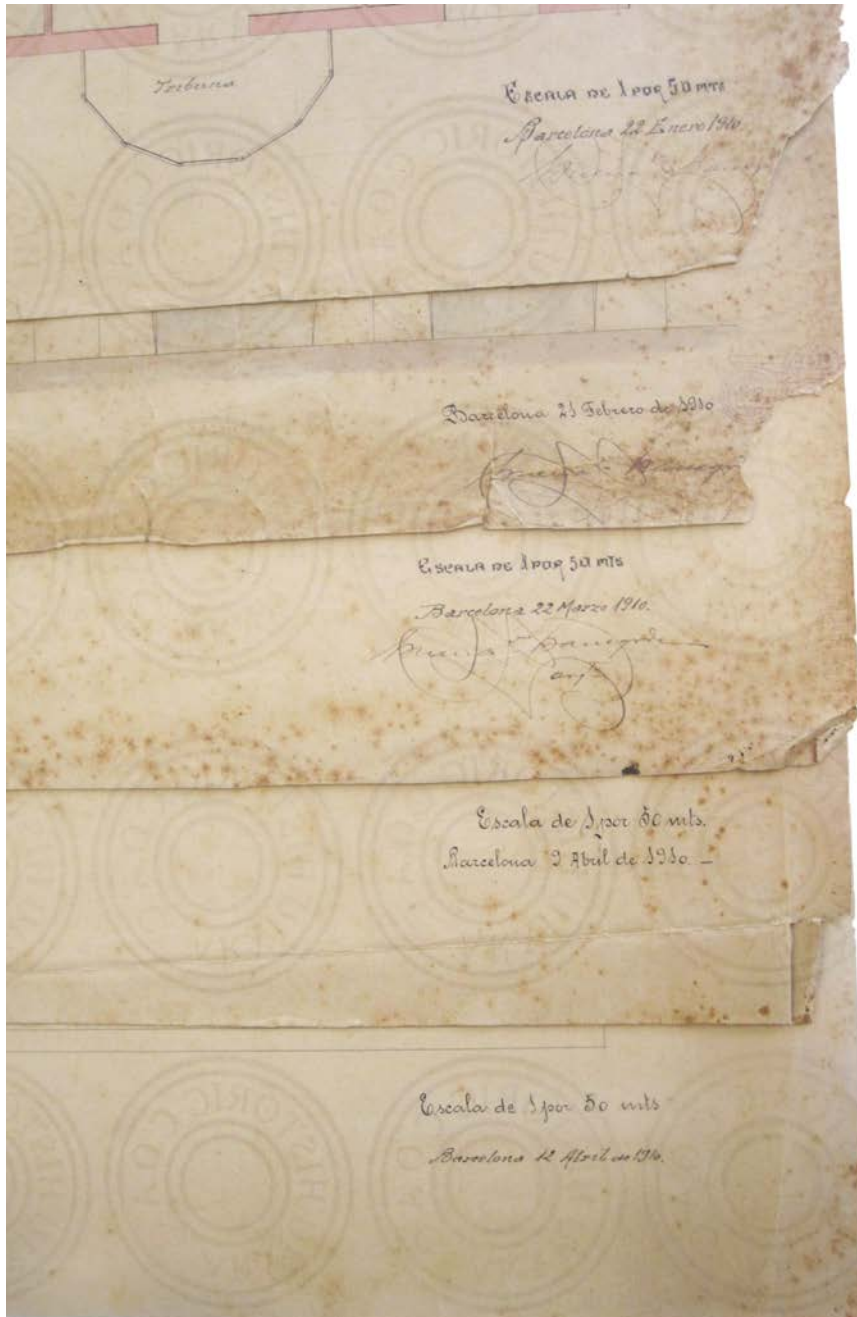 Tribuna
ESCALA DE 1 POR 50 MTS
Barcelona 22 Enero 1910.
Barcelona 21 Febrero de 1910
ESCALA DE 1 POR 50 MTS
Barcelona 22 Marzo 1910.
Escala de 1 por 50 mts.
Barcelona 9 Abril de 1910. —
Escala de 1 por 50 mts
Barcelona 12 Abril de 1910.